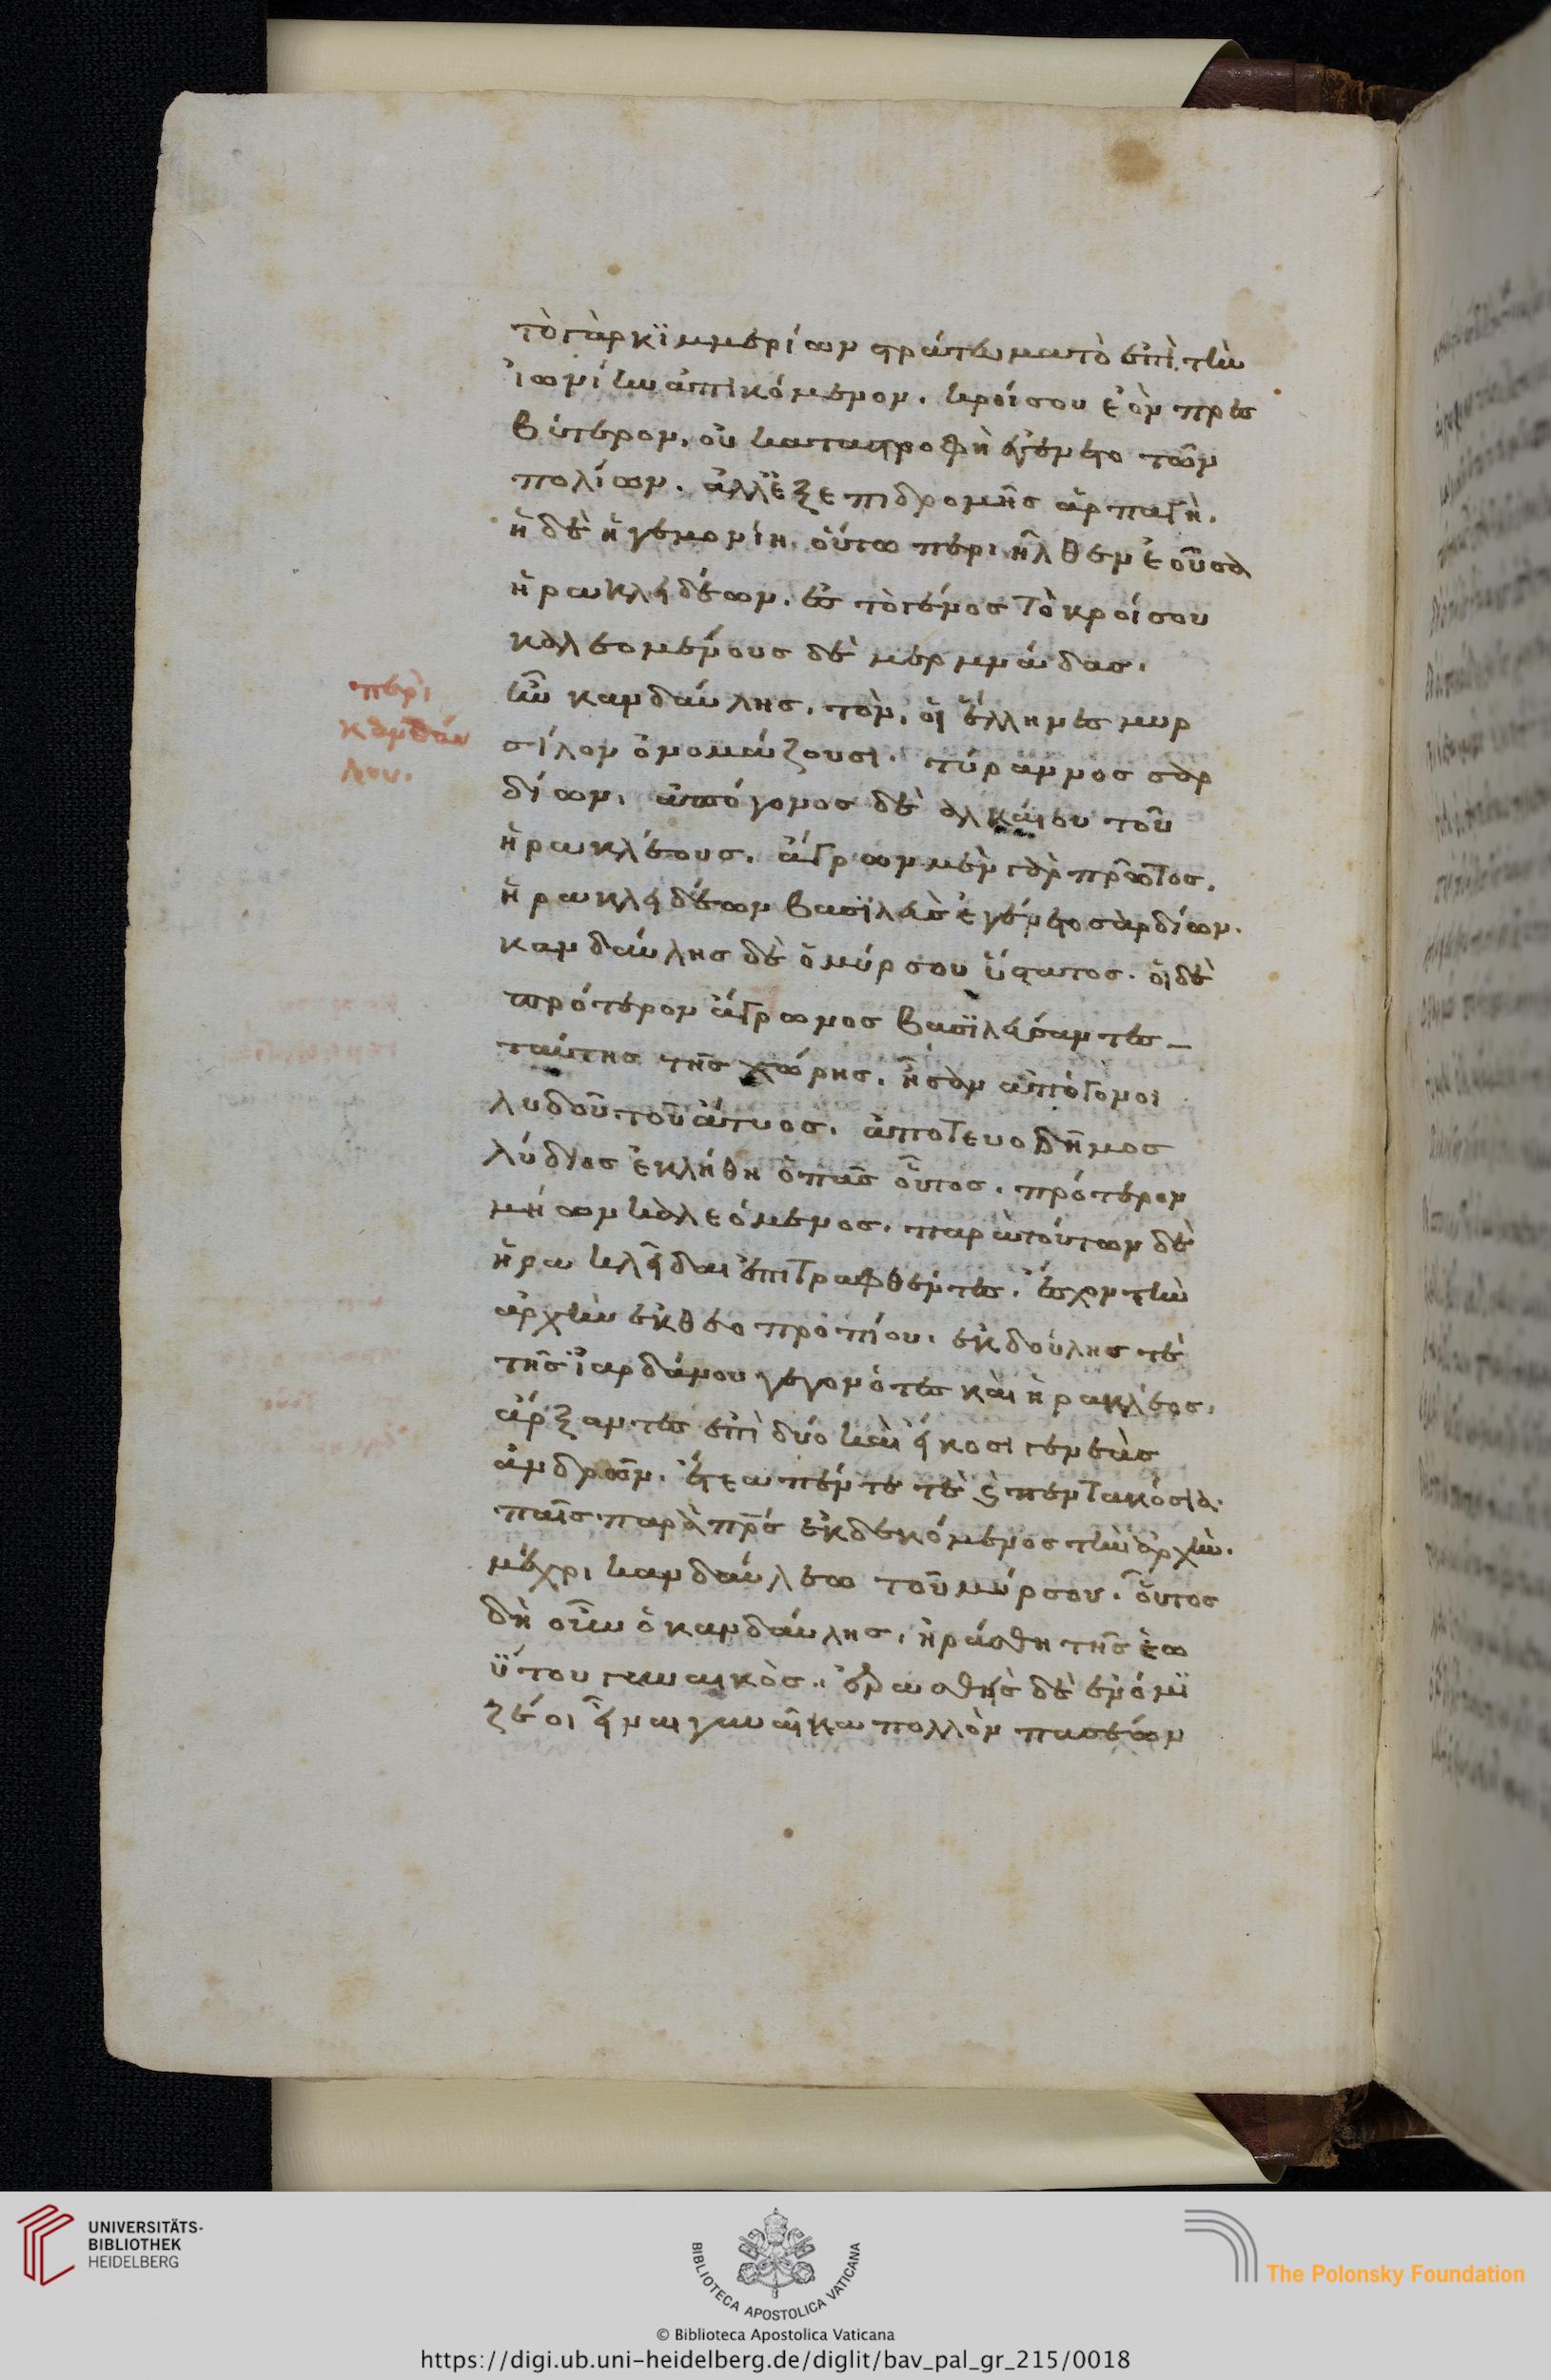 τὸ γὰρ κϊμμερίων στράτευμα τὸ ἐπὶ τὴν
ἰωνίην ἀπικόμενον. κροίσου ἐὸν πρεσ
βύτερον, οὐ καταστροφὴ ἐγένετο τῶν
πολίων. ἀλλ' ἐξ επιδρομῆς ἁρπαγὴ.
ἡ δὲ ἡγεμονίη. οὕτω περιῆλθεν ἐοῦσα
ἡρακλειδέων. ἐς τὸ γένος τὸ κροίσου
καλεομένους δὲ μερμνάδας.
περὶ
κανδάυ
λου.
ἦν κανδάυλης. τὸν, οἱ ἕλληνες μυρ
σίλον ὀνομάζουσι. τύραννος σαρ
δίων. ἀπόγονος δὲ ἀλκαίου τοῦ
ἡρακλέους. ἄγρων μὲν γὰρ πρῶτος.
ἡρακλειδέων βασϊλεὺς ἐγένετο σαρδίων.
κανδάυλης δὲ ὁ μύρσου ὕστατος. οἱ δὲ
πρότερον ἄγρωνος βασϊλεύσαντες
ταύτης τῆς χώρης. ἦσαν ἀπόγονοι
λυδοῦ τοῦ ἄτυος. ἀπ' ὁτευ ὁ δῆμος
λύδιος ἐκλήθη ὁ πᾶς οὗτος. πρότερον
μήων καλεόμενος. παρὰ τούτων δὲ
ἡρακλεῖδαι ἐπιτραφθέντες. ἔσχον τὴν
ἀρχὴν ἐκ θεοπροπίου. ἐκ δούλης τὲ
τῆς ϊαρδάνου γεγονότες καὶ ἡρακλέος.
ἄρξαντες ἐπὶ δύο καὶ εἴκοσι γενεὰς
ἀνδρῶν. ἔτεα πέντε τὲ ϗ πεντακόσια.
παῖς παρὰ πρς ἐκδεκόμενος τὴν ἀρχὴν.
μέχρι κανδάυλεω τοῦ μύρσου. οὗτος
δὴ ὦν ὁ κανδάυλης. ἠράσθη τῆς ἑω
ϋτου γυναικὸς. ἐρασθεὶς δὲ ἐνόμϊ
ζέ οἱ εἶναι γυναῖκα πολλὸν πασέων
UNIVERSITÄTS-
BIBLIOTHEK
HEIDELBERG
BIBLIOTECA APOSTOLICA VATICANA
The Polonsky Foundation
© Biblioteca Apostolica Vaticana
https://digi.ub.uni-heidelberg.de/diglit/bav_pal_gr_215/0018